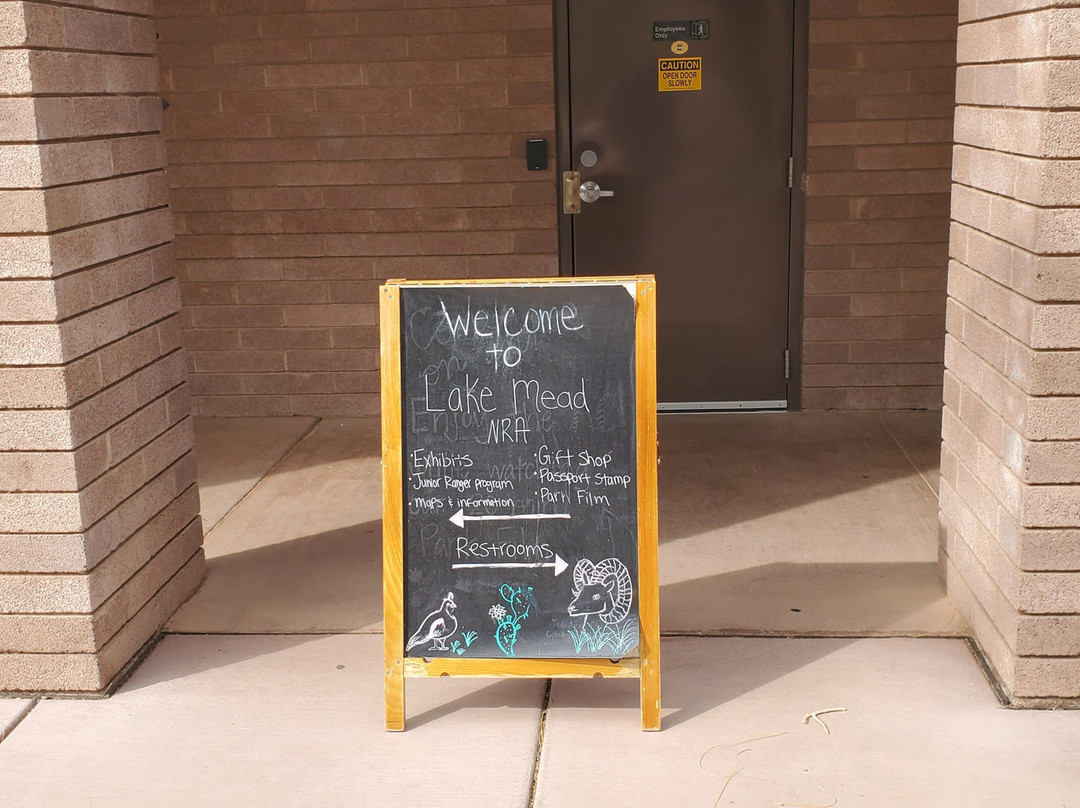 Employees
Only
CAUTION
OPEN DOOR
SLOWLY
Welcome
to
Lake Mead
NRA
• Exhibits
• Junior Ranger program
• Maps & information
• Gift Shop
• Passport Stamp
• Park Film
Restrooms